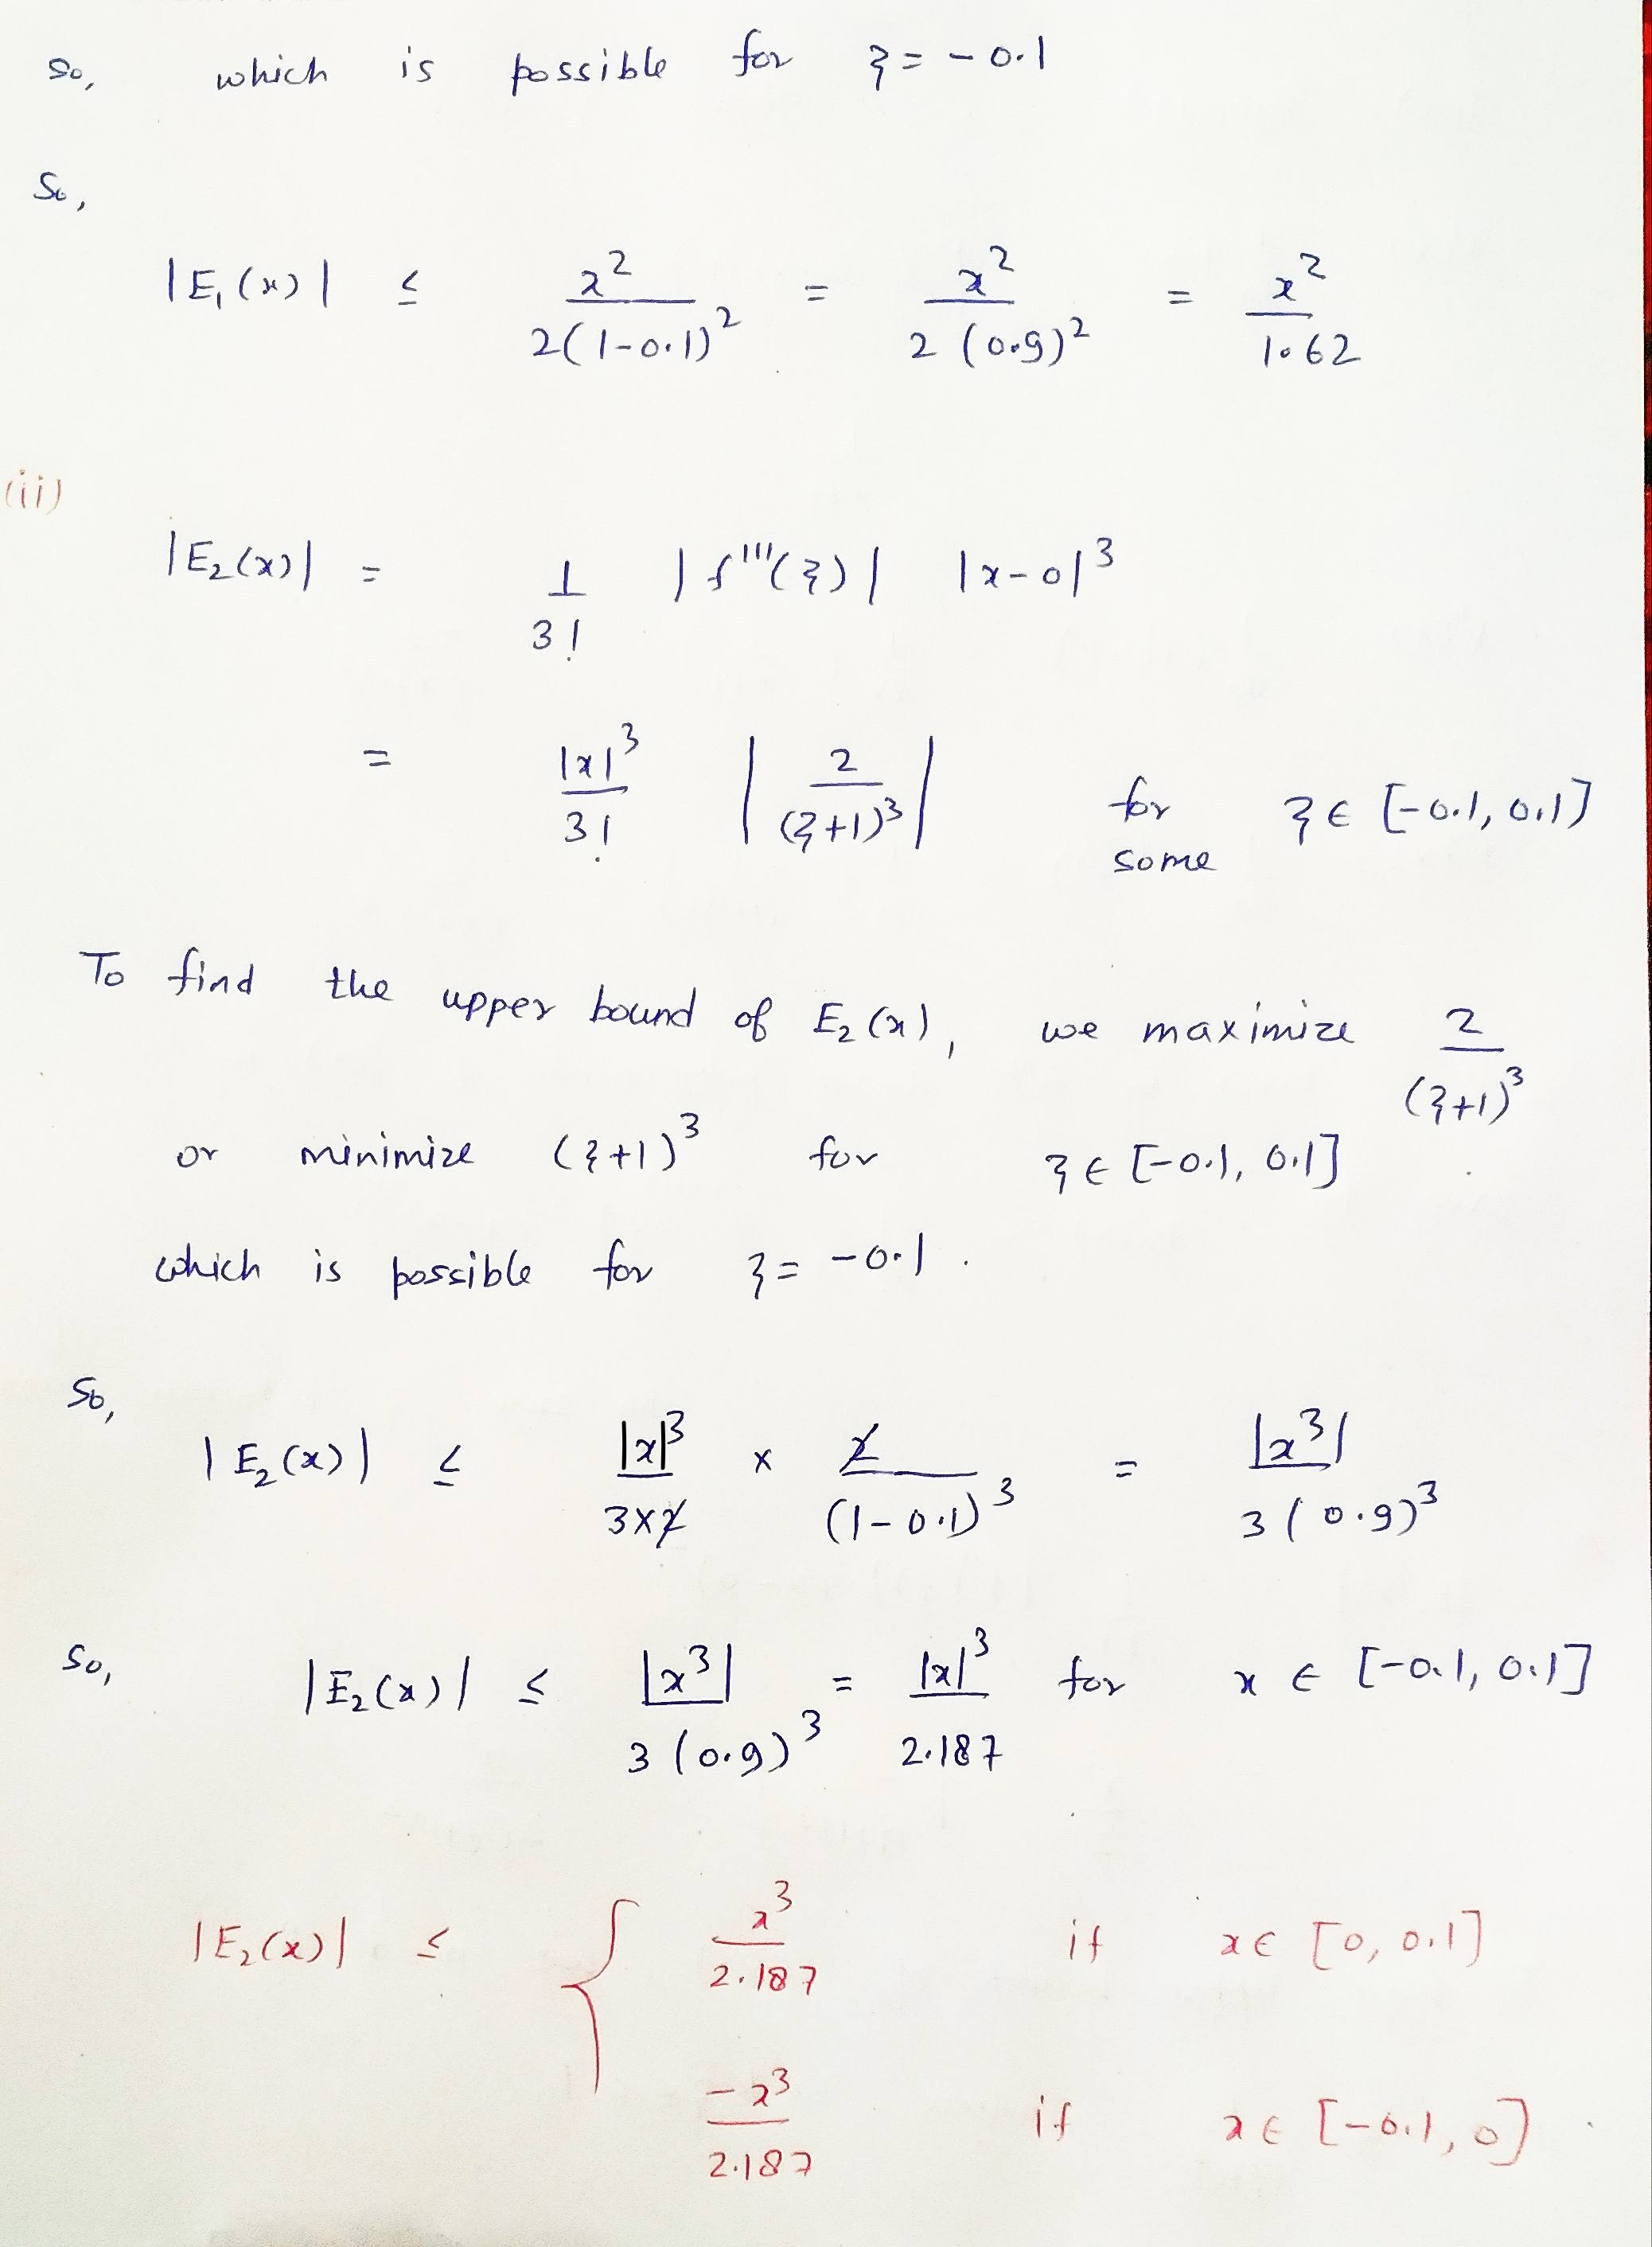 So, which is possible for ξ = -0.1
So,
|E₁(x)| ≤ x²/2(1-0.1)² = x²/2(0.9)² = x²/1.62
(ii)
|E₂(x)| = 1/3! |f'''(ξ)| |x-0|³
= |x|³/3! |2/(ξ+1)³| for some ξ ∈ [-0.1, 0.1]
To find the upper bound of E₂(x), we maximize 2/(ξ+1)³
or minimize (ξ+1)³ for ξ ∈ [-0.1, 0.1]
which is possible for ξ = -0.1.
So,
|E₂(x)| ≤ |x|³/3×2 × 2/(1-0.1)³ = |x³|/3(0.9)³
So, |E₂(x)| ≤ |x³|/3(0.9)³ = |x|³/2.187 for x ∈ [-0.1, 0.1]
|E₂(x)| ≤ { x³/2.187 if x ∈ [0, 0.1]
-x³/2.187 if x ∈ [-0.1, 0].